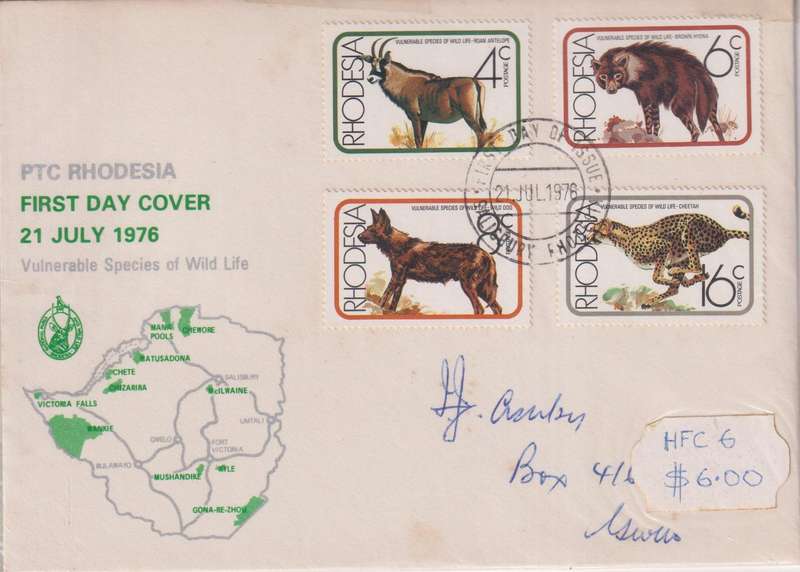 VULNERABLE SPECIES OF WILD LIFE - ROAN ANTELOPE
RHODESIA
4c
POSTAGE
VULNERABLE SPECIES OF WILD LIFE - BROWN HYENA
RHODESIA
6c
POSTAGE
VULNERABLE SPECIES OF WILD LIFE - WILD DOG
RHODESIA
c
POSTAGE
VULNERABLE SPECIES OF WILD LIFE - CHEETAH
RHODESIA
16c
POSTAGE
FIRST DAY OF ISSUE
21 JUL 1976
RHODESIA
PTC RHODESIA
FIRST DAY COVER
21 JULY 1976
Vulnerable Species of Wild Life
MANA POOLS
CHEWORE
MATUSADONA
CHETE
CHIZARIRA
SALISBURY
McILWAINE
VICTORIA FALLS
WANKIE
UMTALI
GWELO
FORT VICTORIA
BULAWAYO
MUSHANDIKE
KYLE
GONA-RE-ZHOU
Box 416
Gwelo
HFC 6
$6.00